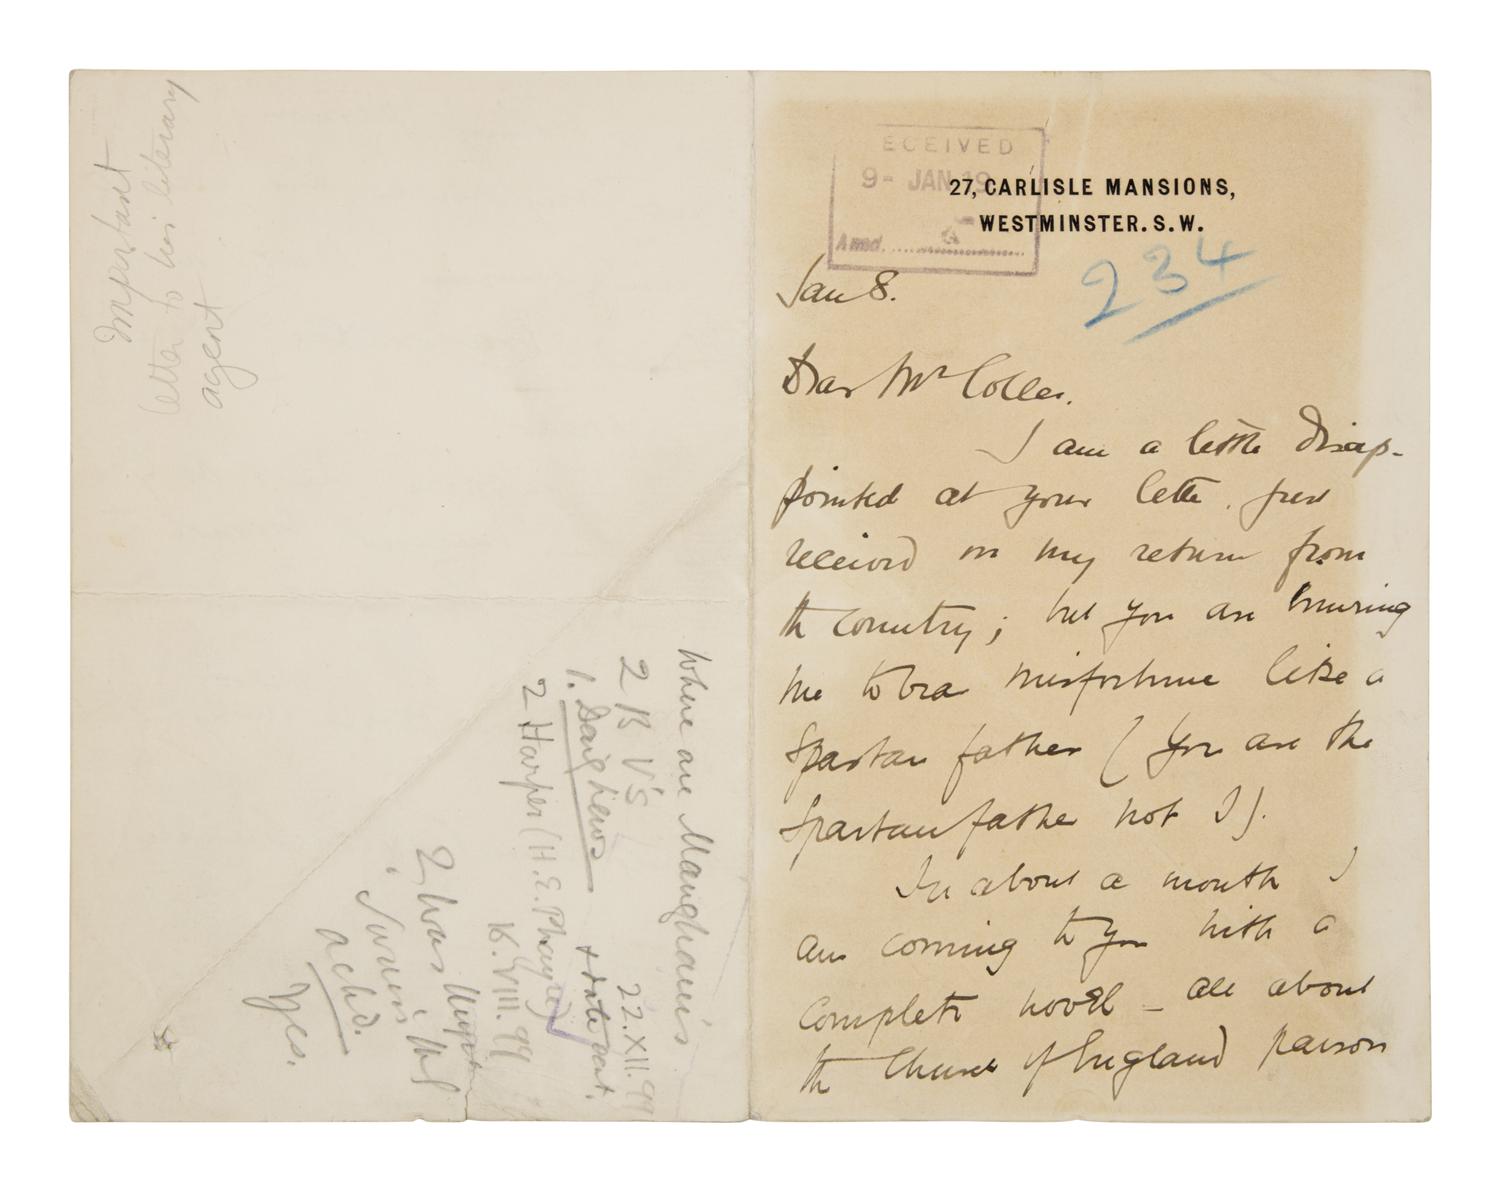 Important
letter to his literary
agent
Where are Maugham's
2 B V's 22.XII.99
1. Daughters + date cont.
2 Harper (H.E. Phayre)
18.VIII.99
2
ackd.
Yes.
RECEIVED
9- JAN 19
Ansd.
27, CARLISLE MANSIONS,
WESTMINSTER. S.W.
234
Jan 8.
Dear Mr Colles.
I am a little disap-
pointed at your letter, just
received on my return from
the country; but you are inuring
me to bear misfortune like a
Spartan father (you are the
Spartan father not I).
In about a month I
am coming to you with a
complete novel - all about
the Church of England parson